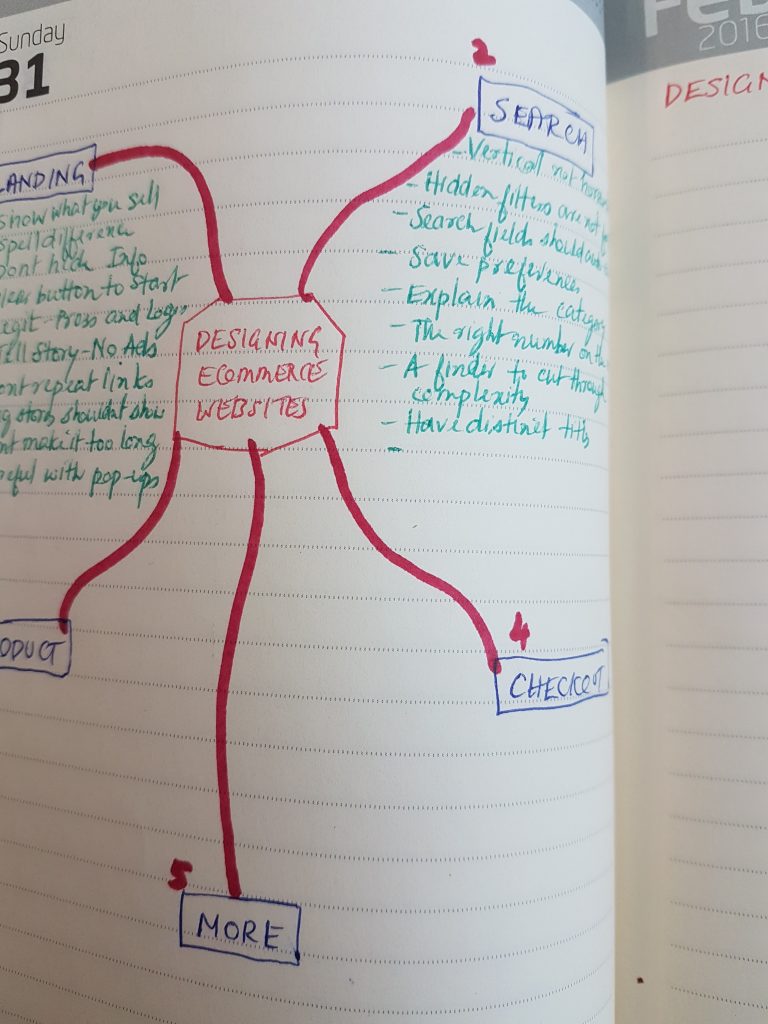 Sunday
31
FEB
2016
DESIGN
2
SEARCH
- Vertical not
- Hidden filters are not
- Search fields should
- Save preferences
- Explain the category
- The right number on the
- A finder to cut through
complexity
- Have distinct titles
-
LANDING
Show what you sell
Spell difference
Dont hide Info
button to Start
Legit - Press and Logos
Tell Story - No Ads
ont repeat links
story shouldnt show
nt make it too long
reful with pop-ups
DESIGNING
ECOMMERCE
WEBSITES
ODUCT
4
CHECKOUT
5
MORE